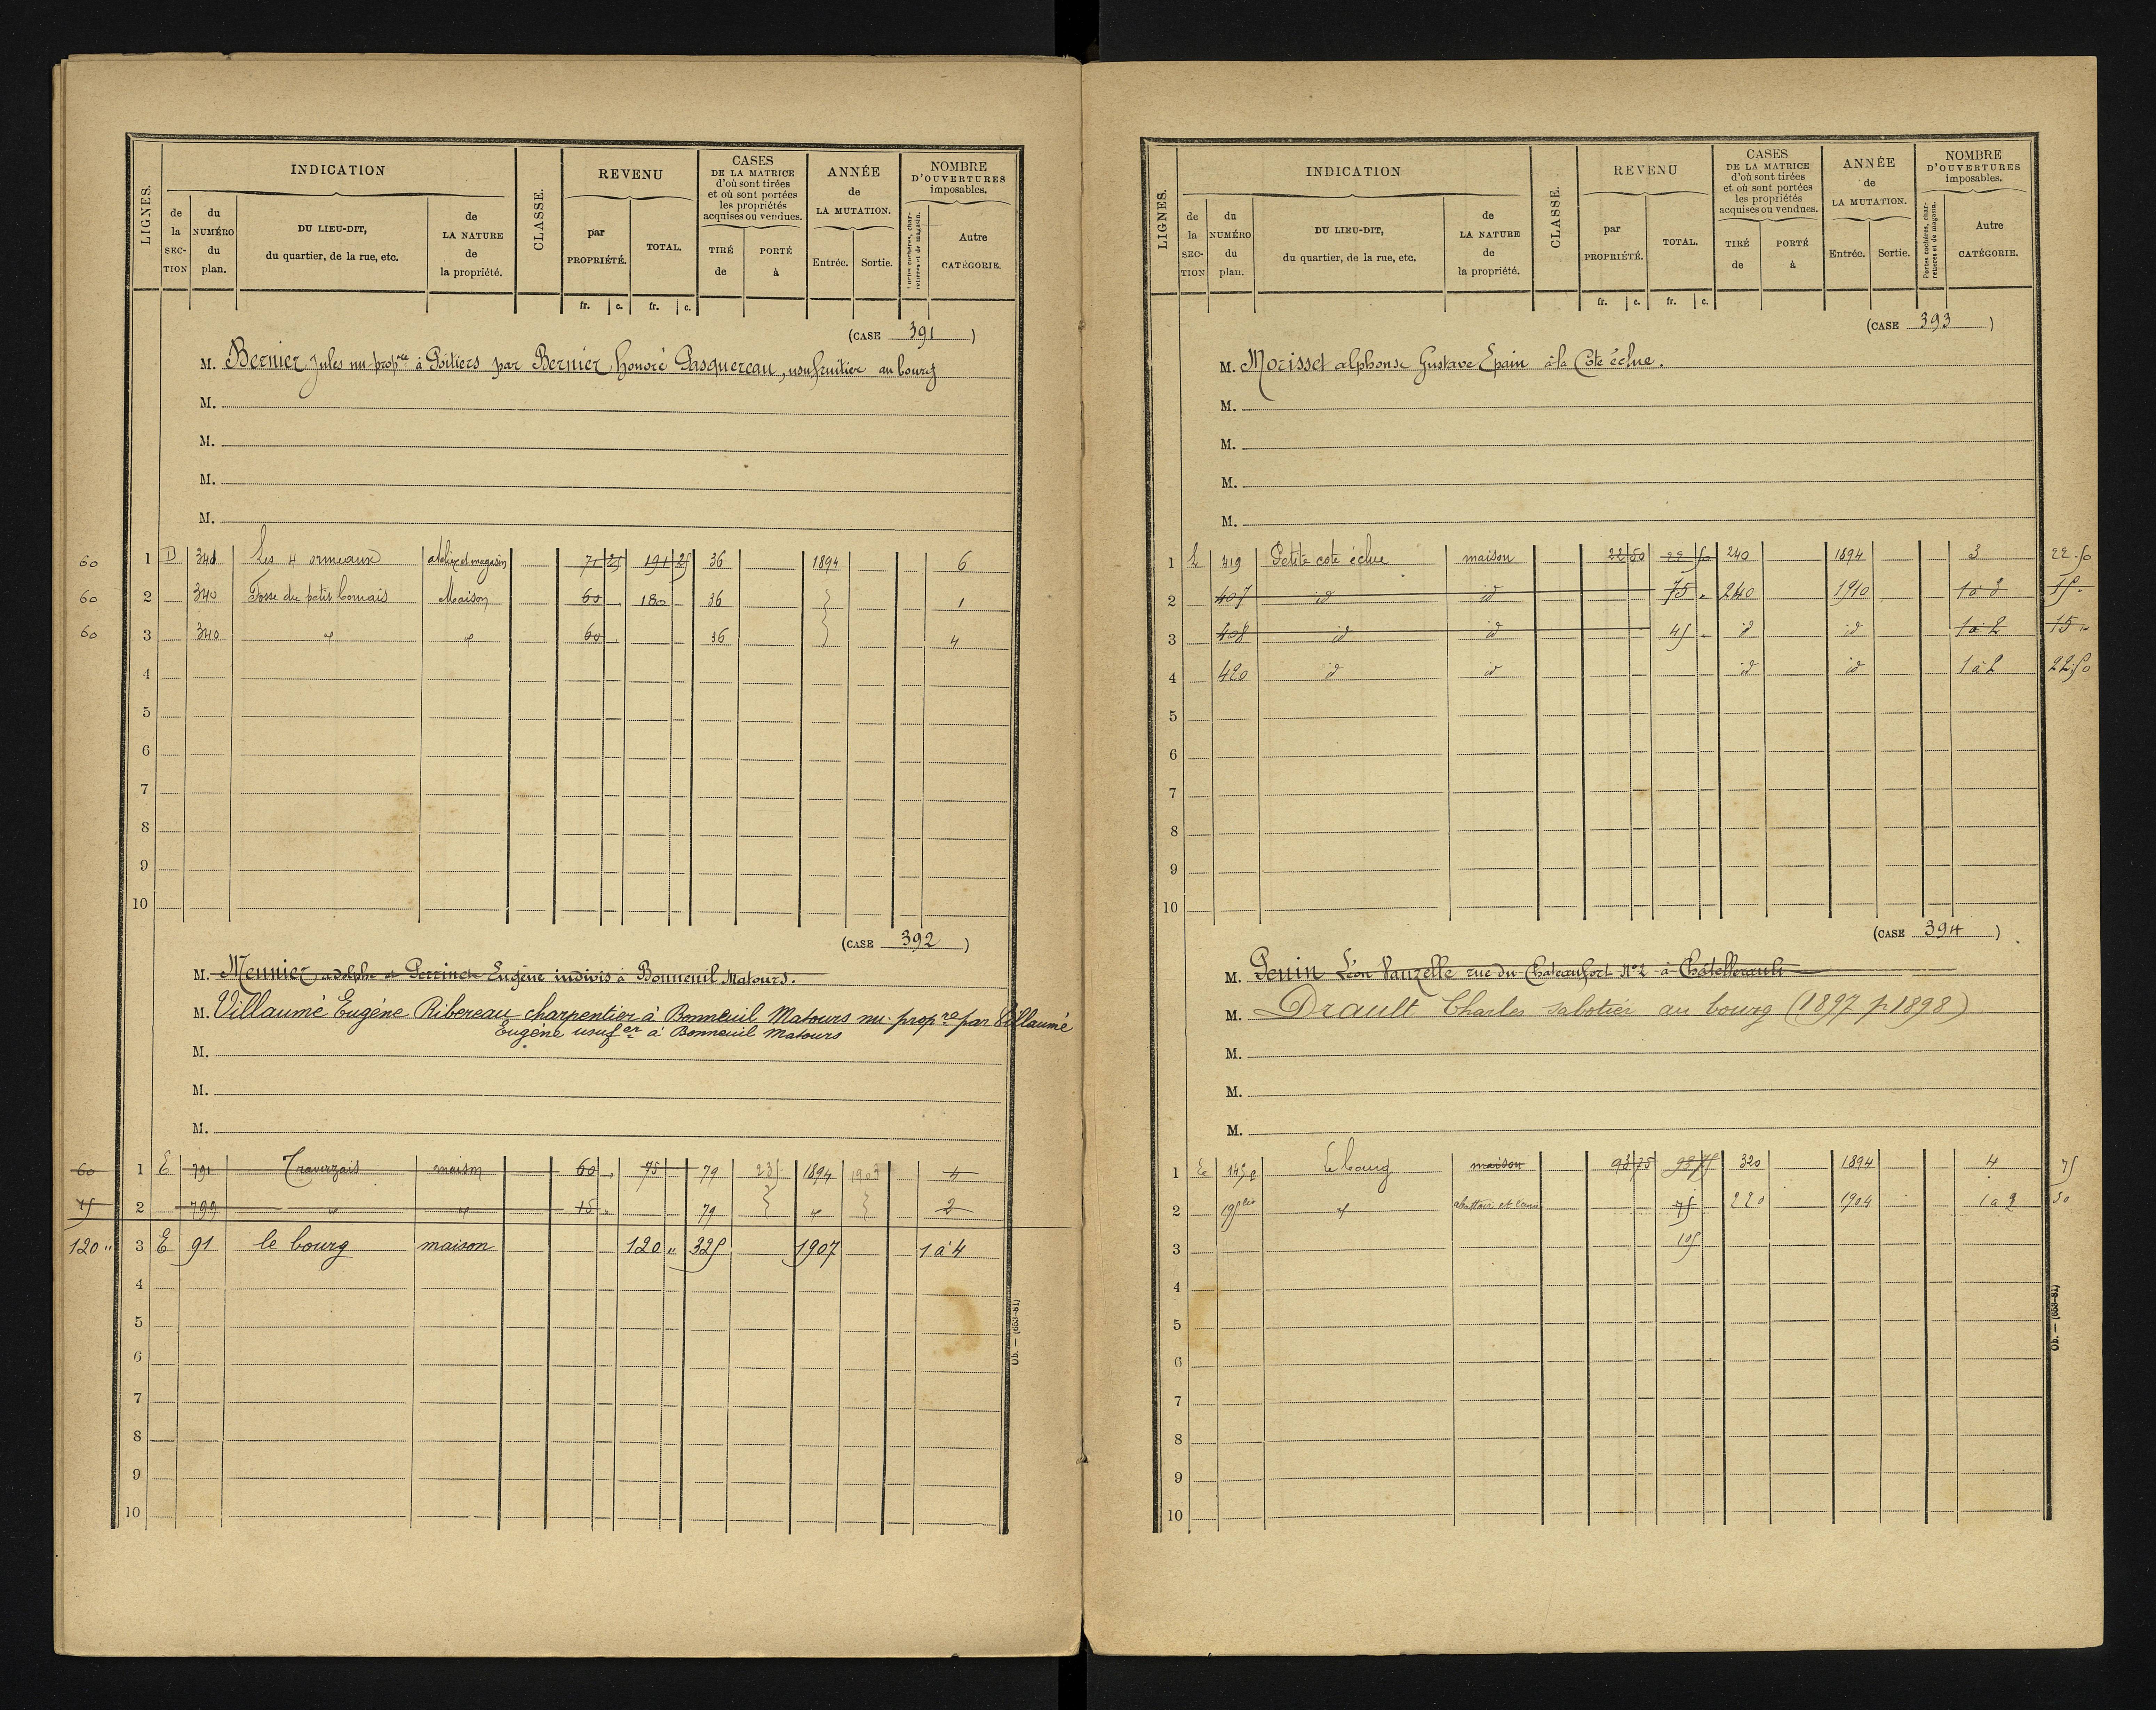 LIGNES.
INDICATION
de la SECTION
du NUMÉRO du plan.
DU LIEU-DIT, du quartier, de la rue, etc.
de LA NATURE de la propriété.
CLASSE.
REVENU
par PROPRIÉTÉ.
TOTAL.
CASES DE LA MATRICE d'où sont tirées et où sont portées les propriétés acquises ou vendues.
TIRÉ de
PORTÉ à
ANNÉE de LA MUTATION.
Entrée. Sortie.
NOMBRE D'OUVERTURES imposables.
Portes cochères, charretières et de magasin.
Autre CATÉGORIE.
fr. c. fr. c.
(CASE 391)
M. Bernier Jules nu-propre à Poitiers par Bernier Honoré Pasquereau, usufruitier au bourg
M.
M.
M.
M.
60 1 D 340 Les 4 ormeaux atelier et magasin 71 25 191 25 36 1894 6
60 2 340 Fosse du petit Cornais Maison 60 180 36 1
60 3 340 " " 60 36 4
4
5
6
7
8
9
10
(CASE 392)
M. Meunier adolphe et Perrinet Eugène indivis à Bonneuil Matours.
M. Villaumé Eugène Ribereau charpentier à Bonneuil Matours nu-propre par Villaumé
Eugène usufer à Bonneuil Matours
M.
M.
M.
60 1 E 791 Traverzais maison 60 75 79 235 1894 1903 4
15 2 799 " " 15 79 " 2
120 " 3 E 91 le bourg maison 120 " 325 1907 1 à 4
4
5
6
7
8
9
10
Ob. — (653-81)
LIGNES.
INDICATION
de la SECTION
du NUMÉRO du plan.
DU LIEU-DIT, du quartier, de la rue, etc.
de LA NATURE de la propriété.
CLASSE.
REVENU
par PROPRIÉTÉ.
TOTAL.
CASES DE LA MATRICE d'où sont tirées et où sont portées les propriétés acquises ou vendues.
TIRÉ de
PORTÉ à
ANNÉE de LA MUTATION.
Entrée. Sortie.
NOMBRE D'OUVERTURES imposables.
Portes cochères, charretières et de magasin.
Autre CATÉGORIE.
fr. c. fr. c.
(CASE 393)
M. Morisset alphonse Gustave Epain à la Cote éclue.
M.
M.
M.
M.
1 419 Petite cote éclue maison 22 50 22 50 240 1894 3 22.50
2 407 id id 75 240 1910 1 à 2 15.
3 408 id id 45 id id 1 à 2 15
4 420 id id id id 1 à 2 22.50
5
6
7
8
9
10
(CASE 394)
M. Penin Léon Vauzelle rue du Chateaufort No 2 à Châtellerault
M. Drault Charles sabotier au bourg (1897 p 1898)
M.
M.
M.
1 E 145 le bourg maison 93 75 93 75 320 1894 4 75
2 195bis " 75 220 1904 1 à 2 30
3 105
4
5
6
7
8
9
10
Ob. — (653-81)